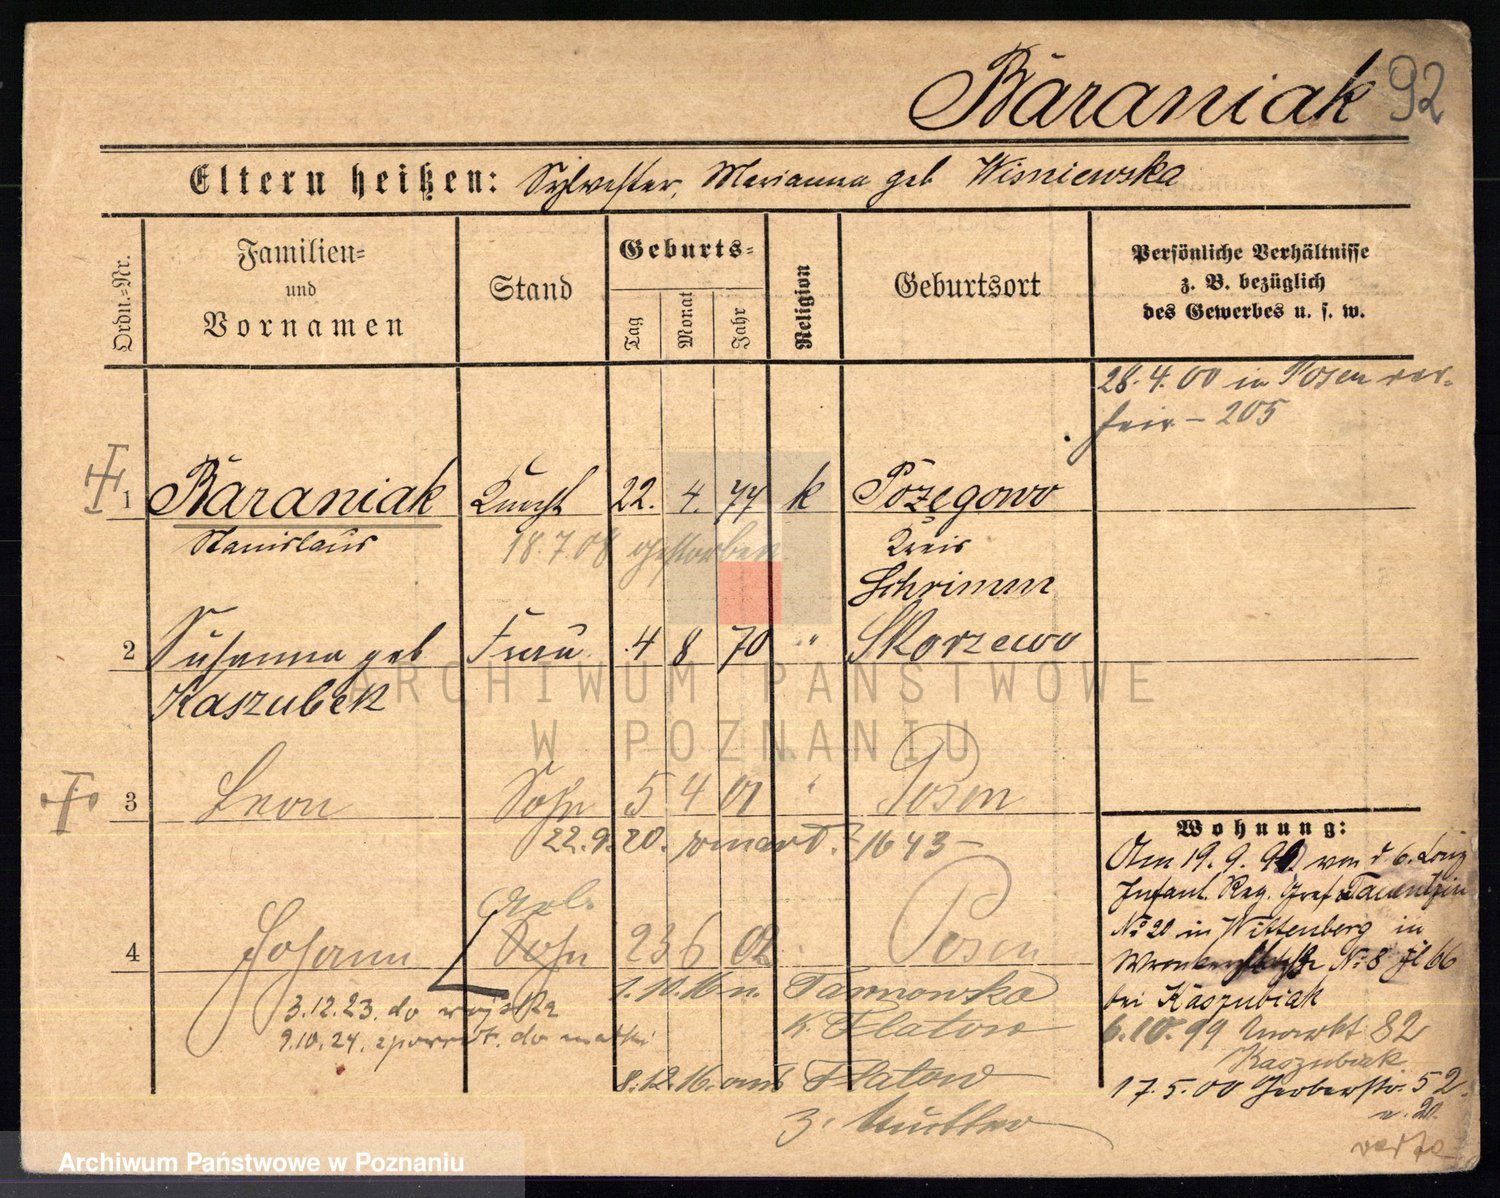 Baraniak 92
Eltern heißen: Sylvester, Marianna geb Wisniewska
Ordn.-Nr.
Familien- und Vornamen
Stand
Geburts-
Tag
Monat
Jahr
Religion
Geburtsort
Persönliche Verhältnisse
z. B. bezüglich
des Gewerbes u. s. w.
28.4.00 in Posen ver-
heir - 205
1 Baraniak Knecht 22. 4. 77 k Pożegowo
Stanislaus 18.7.08 gestorben Kreis
Schrimm
2 Susanna geb Frau 4 8 70 " Skorzewo
Kaszubek
3 Leon Sohn 5 4 01 " Posen
22.9.20. 1643-
Arb.
4 Johann Sohn 23 6 02 Posen
1.10.16 n. Tarnowka
K. Flatow
3.12.23. do wojska
9.10.24. do matki
8.12.16. aus Flatow
z. Mutter
Wohnung:
Am 19.9.99 von d 6.
Infant. Reg. Graf Tauentzin
No 20 in Wittenberg in
No 8
bei Kaszubiak
6.10.99 Markt 82
Kaszubiak
17.5.00 Gerberstr. 52
verte
ARCHIWUM PAŃSTWOWE
W POZNANIU
Archiwum Państwowe w Poznaniu